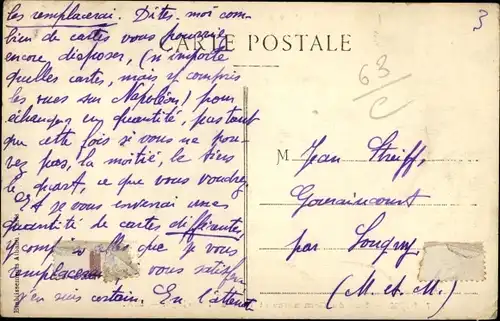 les remplacerai. Dites-moi com-
bien de cartes vous pourriez
encore disposer, (n'importe
quelles cartes, mais y compris
les vues sur Napoléon) pour
échanger en quantité, pas tant
que cette fois si vous ne pou-
vez pas, la moitié, le tiers
le quart, ce que vous voudrez.
Et je vous enverrai une
quantité de cartes différentes,
y compris celle que je vous
remplacerai vous
j'en suis certain. En l'attente
CARTE POSTALE
63/C
3
M Jean Streiff,
Gouraincourt
par Longwy
(M. et M.)